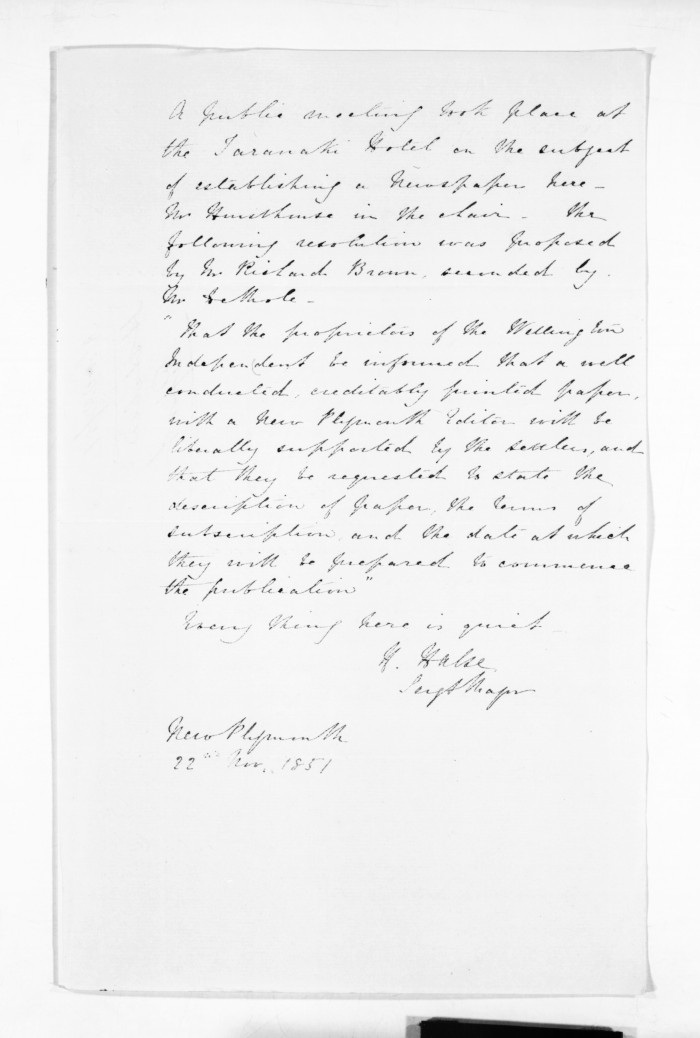 A public meeting took place at
the Taranaki Hotel on the subject
of establishing a Newspaper here -
Mr Hursthouse in the chair - The
following resolution was proposed
by Mr Richard Brown, seconded by
Mr
"That the proprietors of the Wellington
Independent be informed that a well
conducted, creditably printed paper,
with a New Plymouth Editor will be
liberally supported by the settlers, and
that they be requested to state the
description of paper, the terms of
subscription and the date at which
they will be prepared to commence
the publication"
Every thing here is quiet
H. Halse
Sergt Major
New Plymouth
22nd Nov. 1851